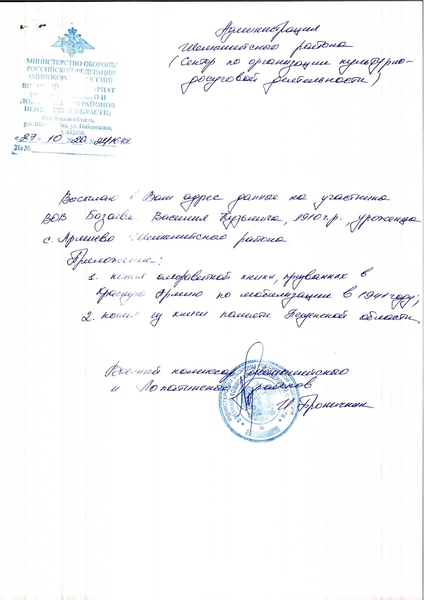 Администрация
Шемышейского района
(Сектор по организации культурно-
досуговой деятельности)
МИНИСТЕРСТВО ОБОРОНЫ
РОССИЙСКОЙ ФЕДЕРАЦИИ
(МИНОБОРОНЫ РОССИИ)
ПЕНЗЕНСКОЙ ОБЛАСТИ)
Пензенская область,
Набережная,
"27" 10 20
На №
Высылаю в Ваш адрес данные на участника
ВОВ Базаева Василия Кузьмича, 1910 г.р., уроженца
с. Армиево Шемышейского района
Приложение:
1. копия алфавитной книги, призванных в
Красную Армию по мобилизации в 1941 году;
2. копия из книги памяти Пензенской области.
Военный комиссар Шемышейского
и Лопатинского районов